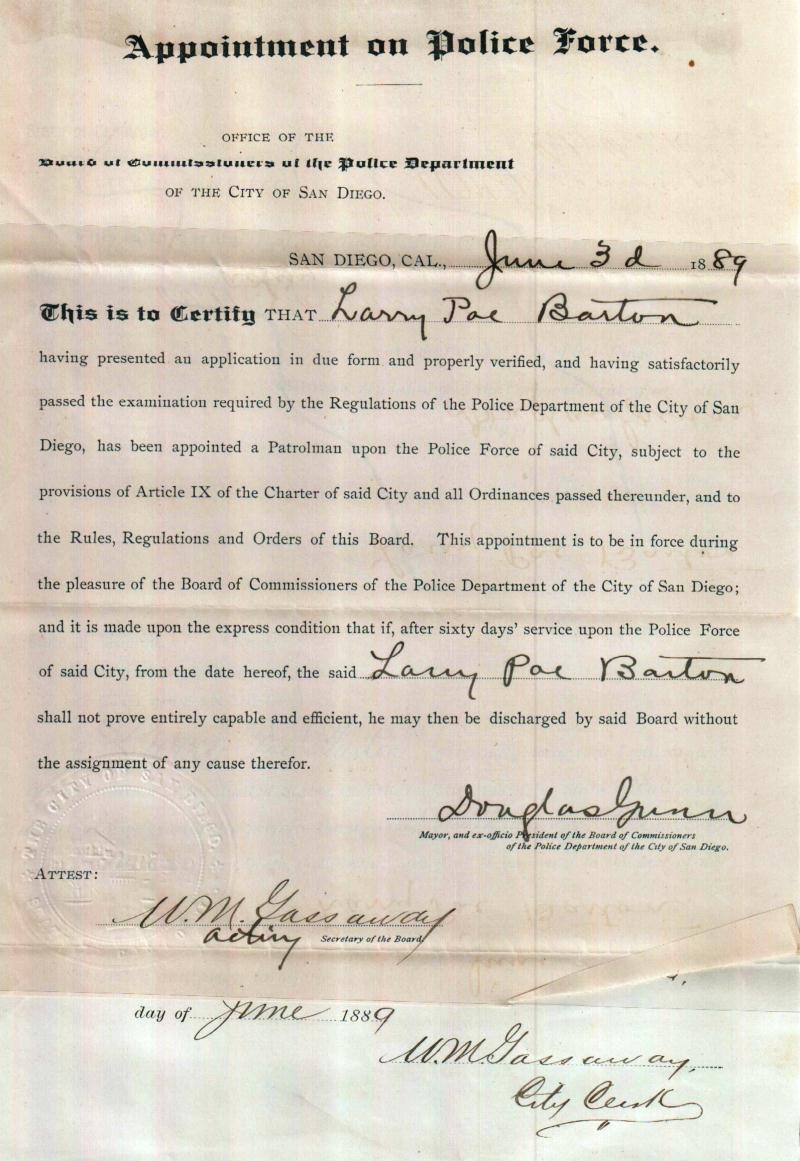 Appointment on Police Force.
OFFICE OF THE
Board of Commissioners of the Police Department
OF THE CITY OF SAN DIEGO.
SAN DIEGO, CAL., June 3d 1889
This is to Certify THAT Larry Poe Barton
having presented an application in due form and properly verified, and having satisfactorily
passed the examination required by the Regulations of the Police Department of the City of San
Diego, has been appointed a Patrolman upon the Police Force of said City, subject to the
provisions of Article IX of the Charter of said City and all Ordinances passed thereunder, and to
the Rules, Regulations and Orders of this Board. This appointment is to be in force during
the pleasure of the Board of Commissioners of the Police Department of the City of San Diego;
and it is made upon the express condition that if, after sixty days' service upon the Police Force
of said City, from the date hereof, the said Larry Poe Barton
shall not prove entirely capable and efficient, he may then be discharged by said Board without
the assignment of any cause therefor.
Douglas Gunn
Mayor, and ex-officio President of the Board of Commissioners
of the Police Department of the City of San Diego.
ATTEST:
W. M. Gassaway
acting Secretary of the Board.
day of June 1889
W. M. Gassaway,
City Clerk